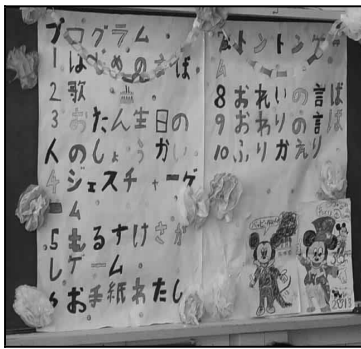 プログラム
1 はじめのことば
2 歌
3 おたん生日の
人のしょうかい
4 ジェスチャーゲ
ーム
5 むるすけさが
しゲーム
6 お手紙わたし
トントンゲー
ム
8 おれいの言ば
9 おわりの言ば
10 ふりかえり